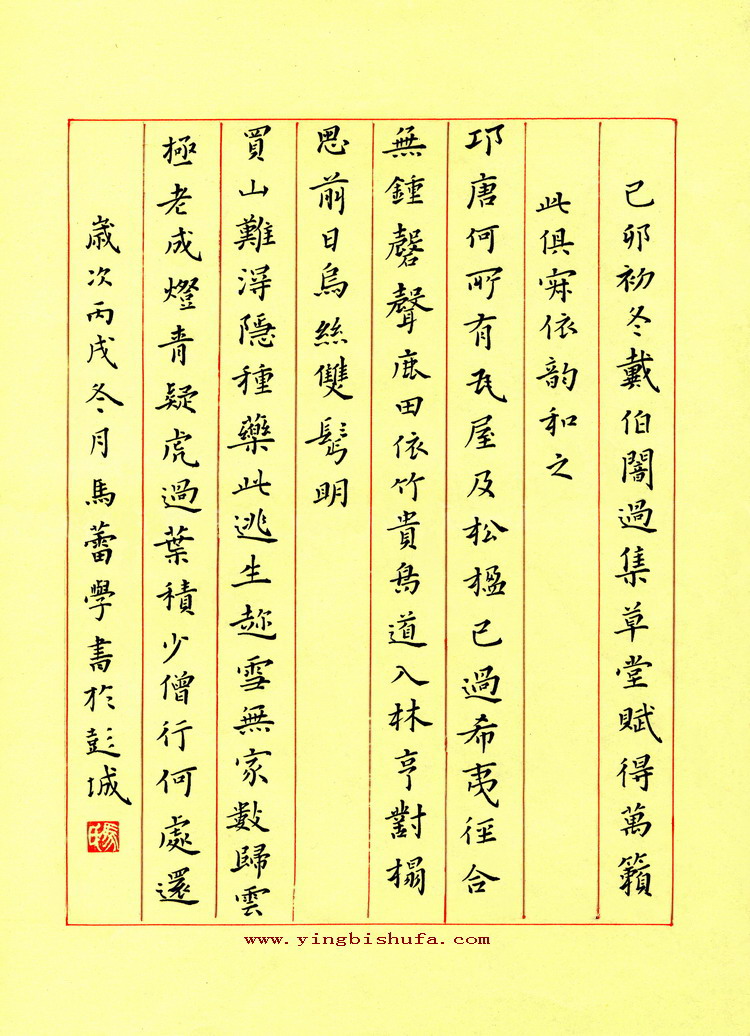 己卯初冬戴伯闇過集草堂賦得萬籟
此俱寂依韵和之
邛唐何所有瓦屋及松楹已過希夷徑合
無鍾磬聲鹿田依竹貴鳥道入林亨對榻
思前日烏絲雙鬢明
買山難得隱種藥此逃生趂雪無家數歸雲
極老成燈青疑虎過葉積少僧行何處還
歲次丙戌冬月馬蕾學書於彭城
www.yingbishufa.com